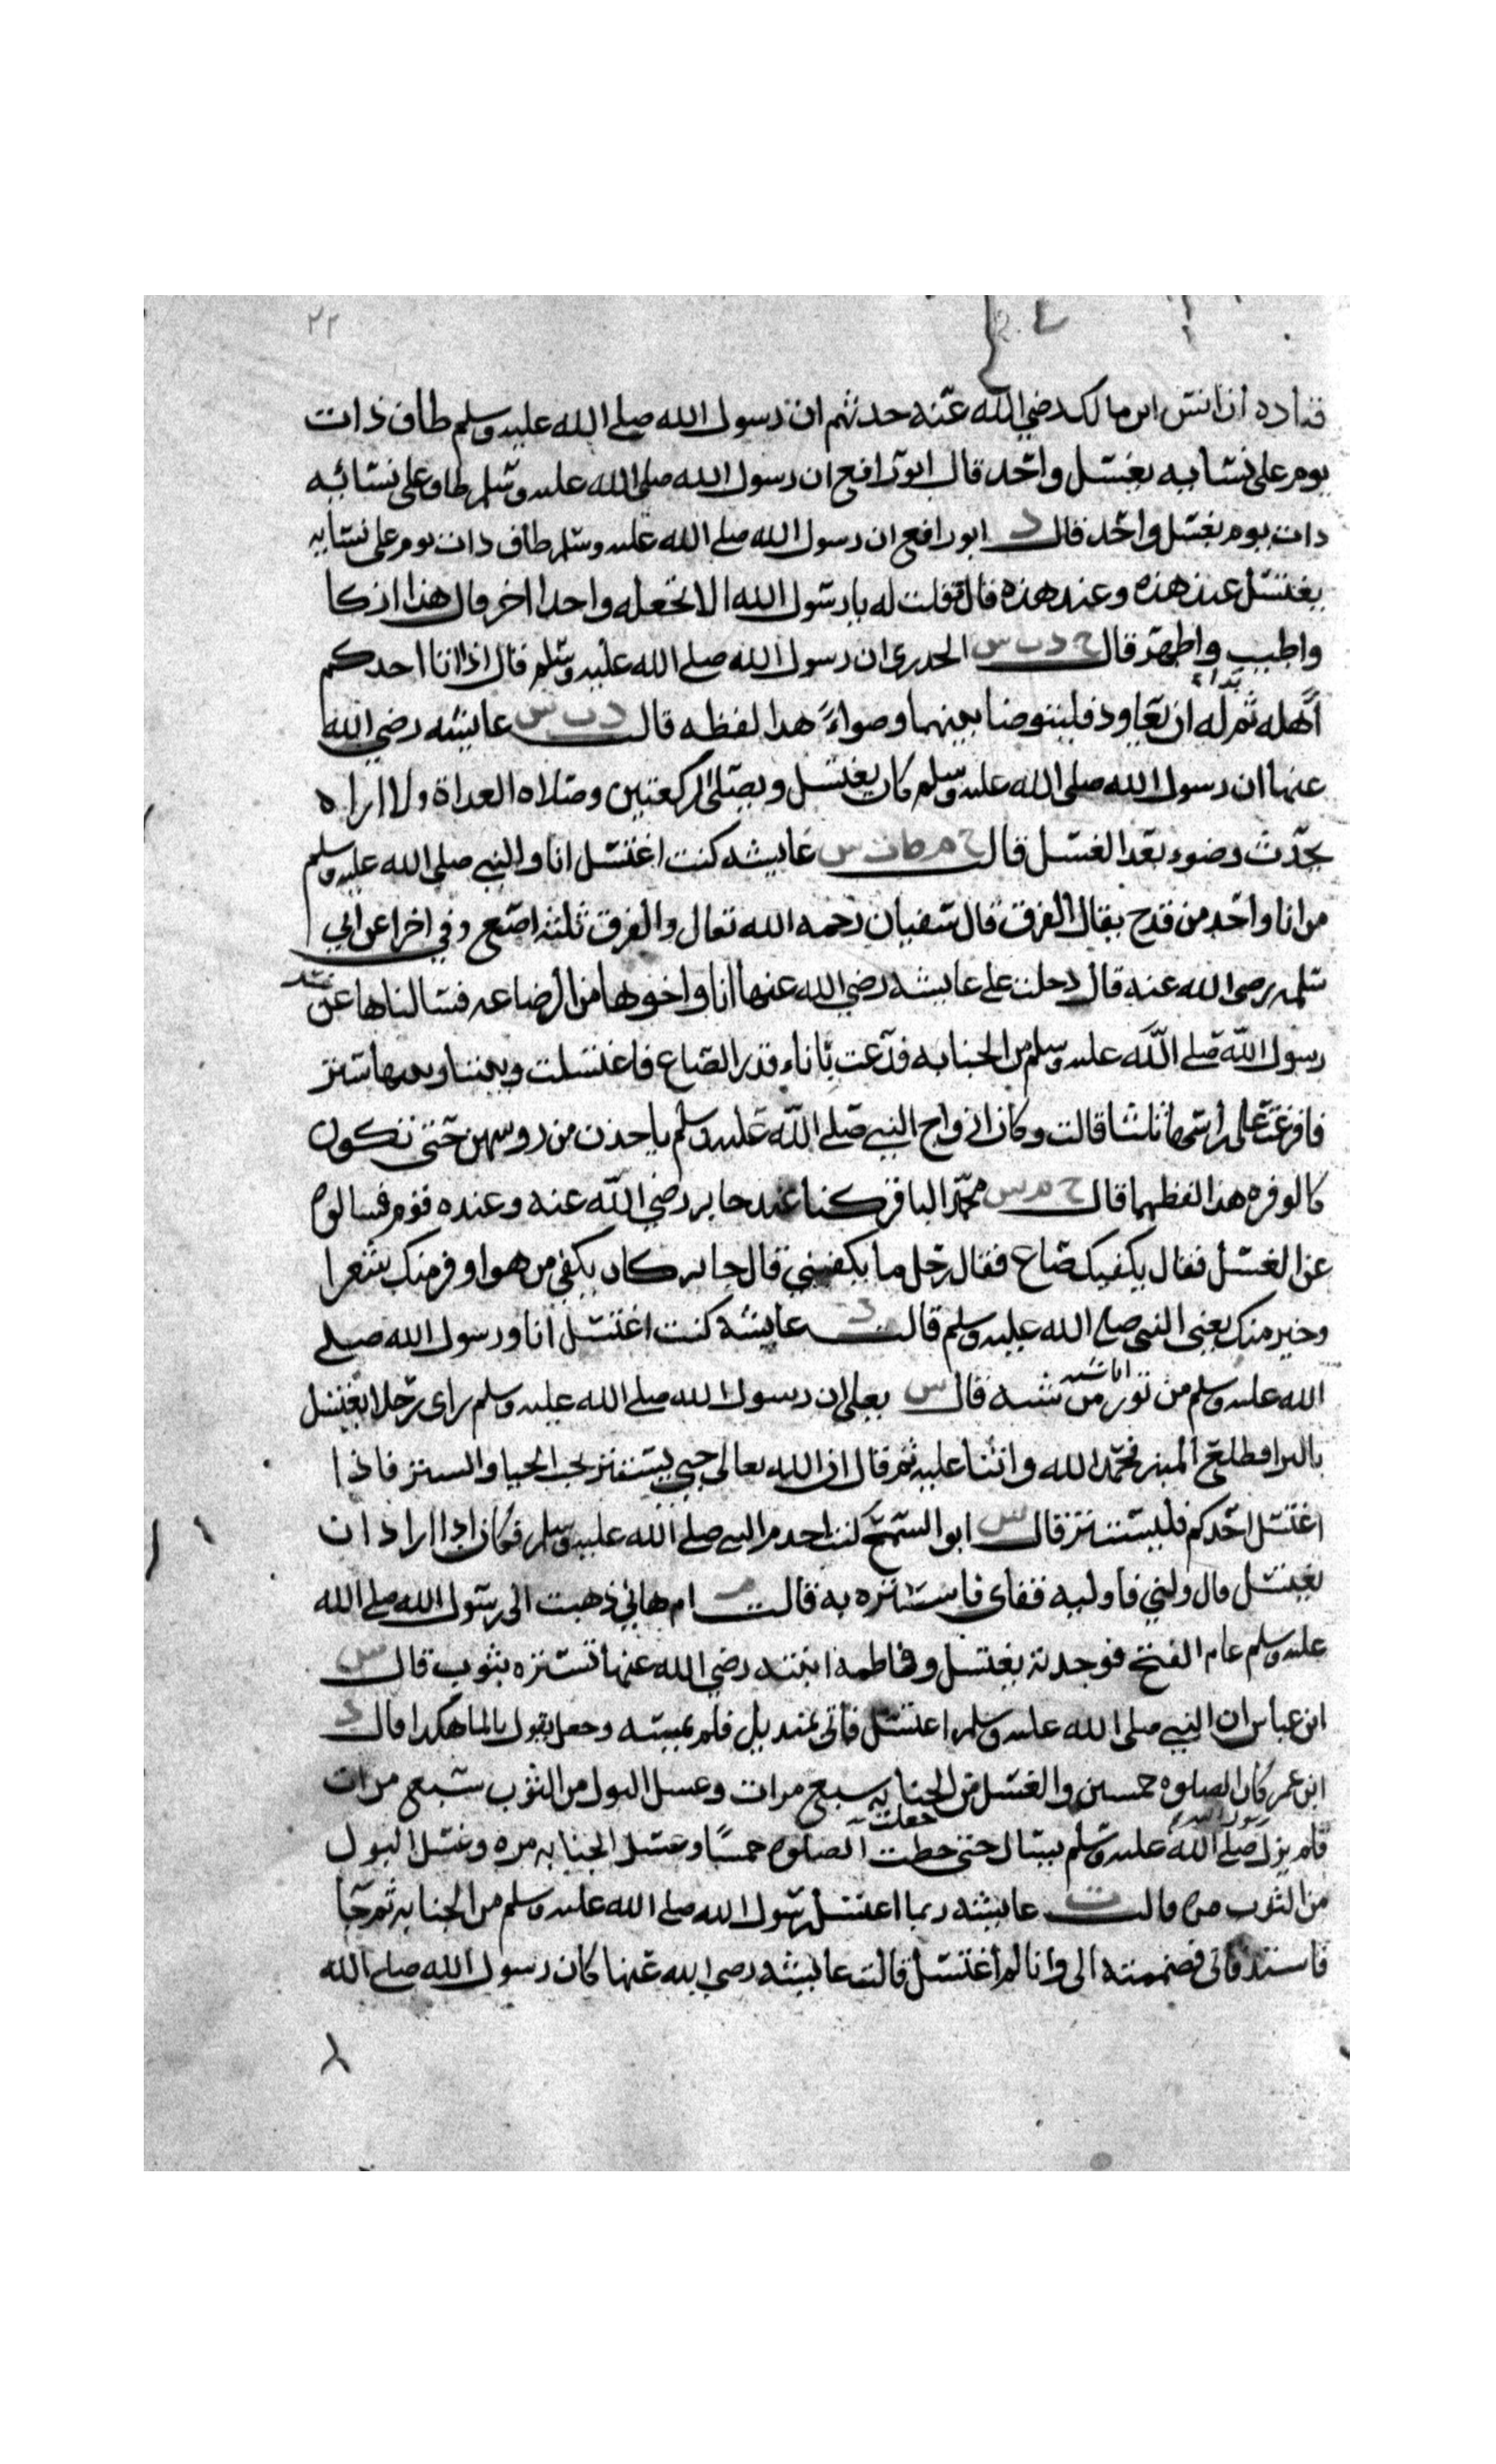 ٢٢
قتاده ان انس ابن مالك رضي الله عنه حدثهم ان رسول الله صلى الله عليه وسلم طاف ذات
يوم على نسايه بغسل واحد قال ابو رافع ان رسول الله صلى الله عليه وسلم طاف على نسائه
ذات يوم بغسل واحد قال د ابو رافع ان رسول الله صلى الله عليه وسلم طاف ذات يوم على نسايه
يغتسل عند هذه وعند هذه قال فقلت له يا رسول الله الا تجعله واحدا اخر قال هذا ازكا
واطيب واطهر قال م د ت س الخدري ان رسول الله صلى الله عليه وسلم قال اذا اتا احدكم
اهله ثم بدا له ان يعاود فليتوضا بينهما وضواءً هذا لفظه قالت د ت س عايشه رضي الله
عنها ان رسول الله صلى الله عليه وسلم كان يغتسل ويصلى الركعتين وصلاه الغداة ولا اراه
يحدث وضوء بعد الغسل قالت عايشه كنت اغتسل انا والنبي صلى الله عليه وسلم
من انا واحد من قدح يقال الفرق قال سفيان رحمه الله تعال والفرق ثلثه اصع وفي اخرا عن ابي
سلمه رضي الله عنه قال دخلت على عايشه رضي الله عنها انا واخوها من الرضاعه فسالناها عن غسل
رسول الله صلى الله عليه وسلم من الجنابه فدعت باناء قدر الصاع فاغتسلت وبيننا وبينها ستر
فافرغت على راسها ثلثا قالت وكان ازواج النبي صلى الله عليه وسلم ياخذن من روسهن حتى تكون
كالوفره هذا لفظهما قال خ م س محمد الباقر كنا عند جابر رضي الله عنه وعنده قوم فسالوه
عن الغسل فقال يكفيك صاع فقال رجل ما يكفيني قال جابر كان يكفي من هو اوفر منك شعرا
وخير منك يعني النبي صلى الله عليه وسلم قالت د عايشه كنت اغتسل انا ورسول الله صلى
الله عليه وسلم من تور من شبه قال س يعلى ان رسول الله صلى الله عليه وسلم راى رجلا يغتسل
بالبراز فطلع المنبر فحمد الله واثنا عليه ثم قال ان الله تعالى حيي ستير يحب الحيا والستر فاذا
اغتسل احدكم فليستتر قال س ابو السمح كنت اخدم النبي صلى الله عليه وسلم فكان اذا اراد ان
يغتسل قال ولني فاوليه قفاى فاستره به قالت م ام هاني ذهبت الى رسول الله صلى الله
عليه وسلم عام الفتح فوجدته يغتسل وفاطمه ابنته رضي الله عنها تستره بثوب قال س
ابن عباس ان النبي صلى الله عليه وسلم اغتسل فاتى بمنديل فلم يمسه وجعل يقول بالما هكذا قال د
ابن عمر كان الصلوه خمسين والغسل من الجنابه سبع مرات وغسل البول من الثوب سبع مرات
فلم يزل رسول الله صلى الله عليه وسلم يسال حتى جعلت الصلوه خمسًا وغسل الجنابه مره وغسل البول
من الثوب مره قالت ت عايشه ربما اغتسل رسول الله صلى الله عليه وسلم من الجنابه ثم جا
فاستدفاني فضممته الى وانا لم اغتسل قالت عايشه رضي الله عنها كان رسول الله صلى الله